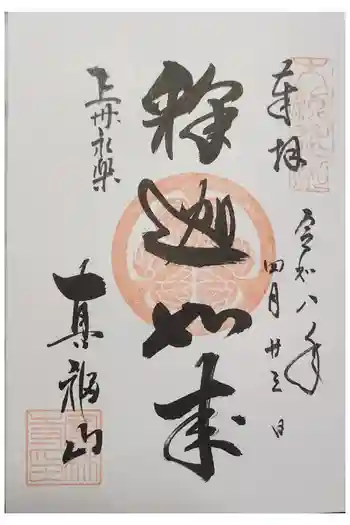 奉拝
令和八年
四月廿三日
釋迦如来
上州永楽
真福山